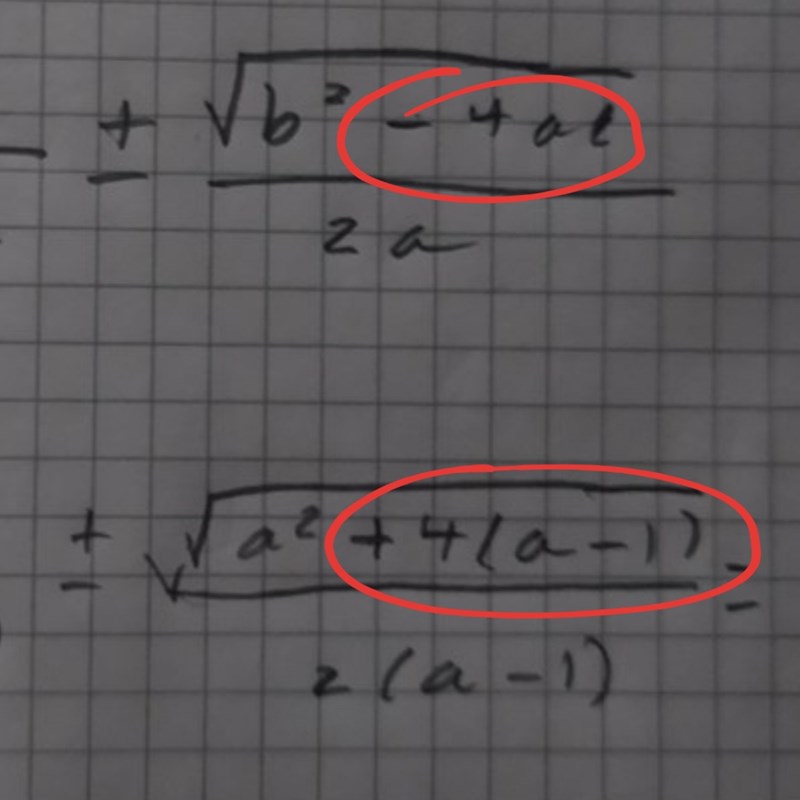 ± √b² - 4ac
2a
± √a² + 4(a-1) =
2(a-1)